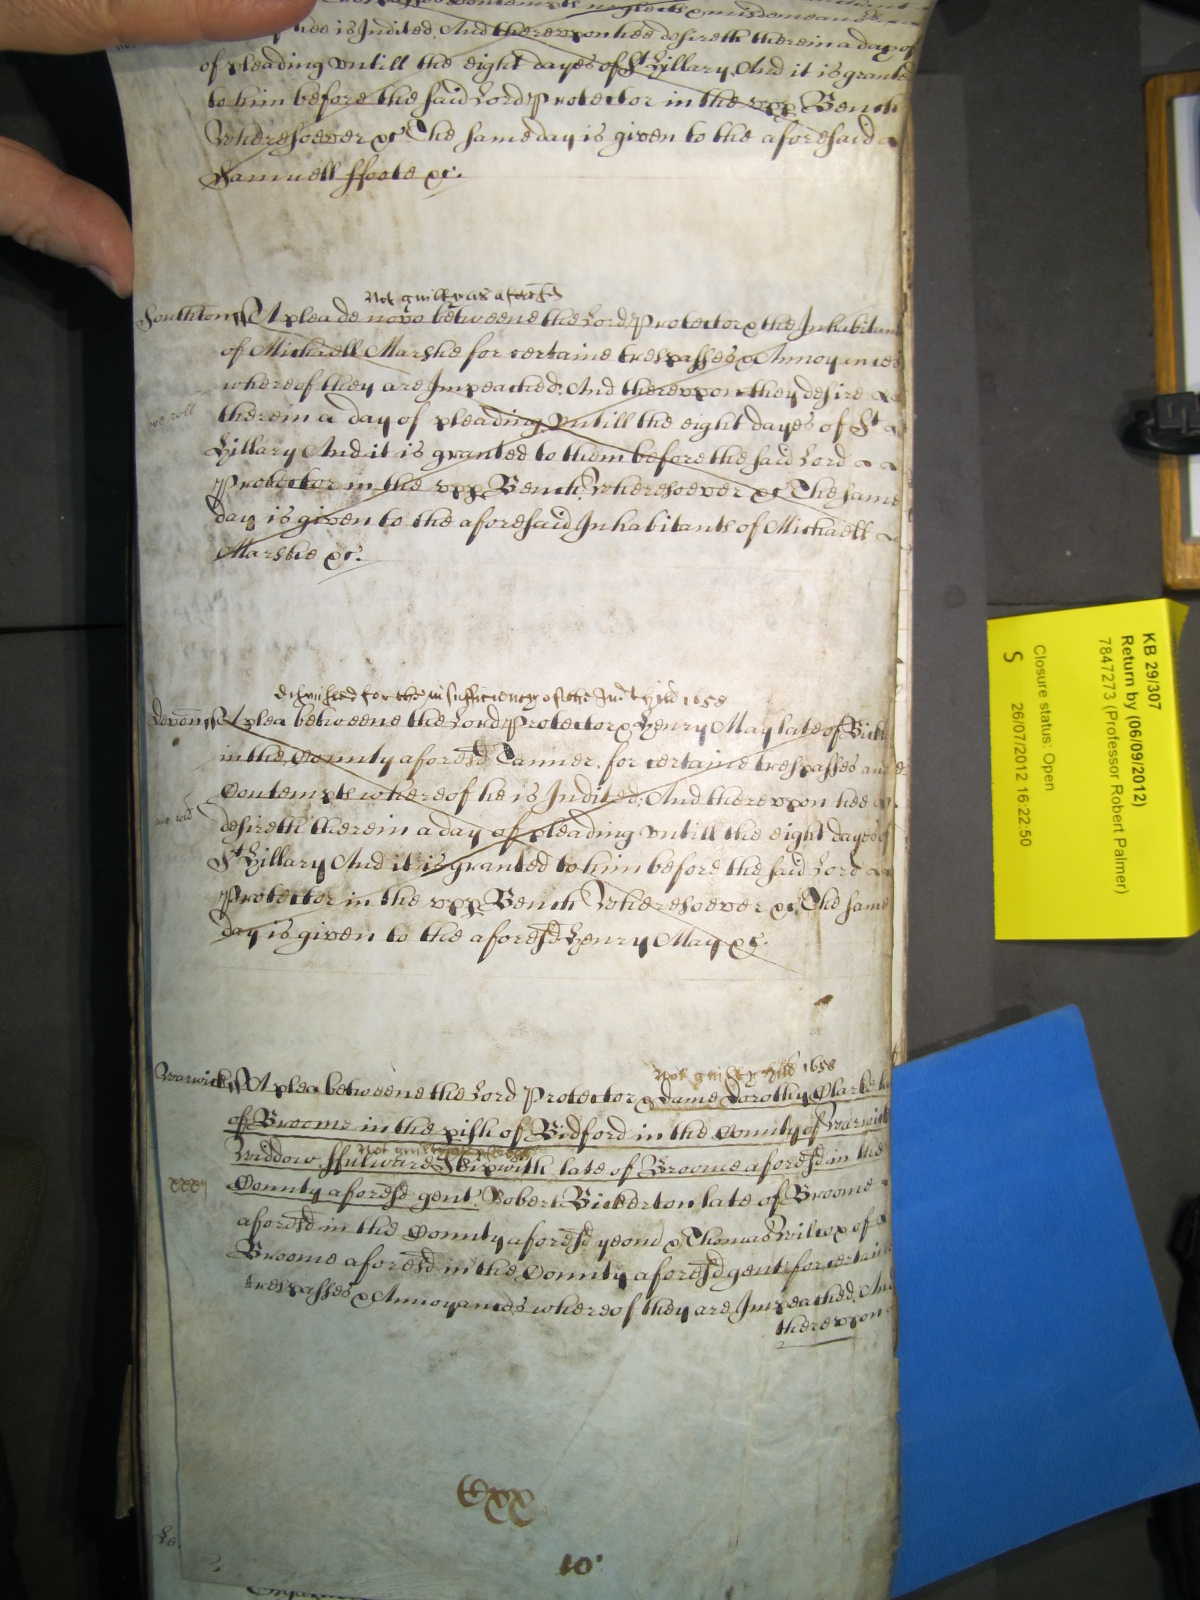 hee is Indited. And therevpon hee desireth therein a day of
of pleading vntill the eight dayes of St Hillary And it is graunted
to him before the said Lord Protector in the vpp Bench
Wheresoever &c The same day is given to the aforesaid
Samuell ffoote &c.
Not guilty as aforesd
Southton ss A plea de novo betweene the Lord Protector & the Inhabitants
of Michaell Marshe for certaine trespasses & Annoyances
whereof they are Impeached. And therevpon they desire
therein a day of pleading vntill the eight dayes of St
Hillary And it is granted to them before the said Lord
Protector in the vpp Bench Wheresoever &c The same
day is given to the aforesaid Inhabitants of Michaell
Marshe &c.
dismissed for the insufficiency of the Indt Hill 1658
Devon ss A plea betweene the Lord Protector & Henry May late of
in the County aforesd Tanner, for certaine trespasses and
Contempts whereof he is Indited. And therevpon hee
desireth therein a day of pleading vntill the eight dayes of
St Hillary And it is granted to him before the said Lord
Protector in the vpp Bench Wheresoever &c The same
day is given to the aforesd Henry May &c.
Not guilty Hill 1658
Warwick ss A plea betweene the Lord Protector & Dame Dorothy Clarke
of Broome in the pish of Bidford in the County of Warwick
Not guilty
Widdow, ffulwarr Skipwith late of Broome aforesd in the
County aforesd gent. Robert Bickerton late of Broome
aforesd in the County aforesd yeom & Thomas Wilcox of
Broome aforesd in the County aforesd gent for certaine
trespasses & Annoyances whereof they are Impeached. And
therevpon
10.
KB 29/307
Return by (06/09/2012)
7847273 (Professor Robert Palmer)
Closure status: Open
S 26/07/2012 16:22:50